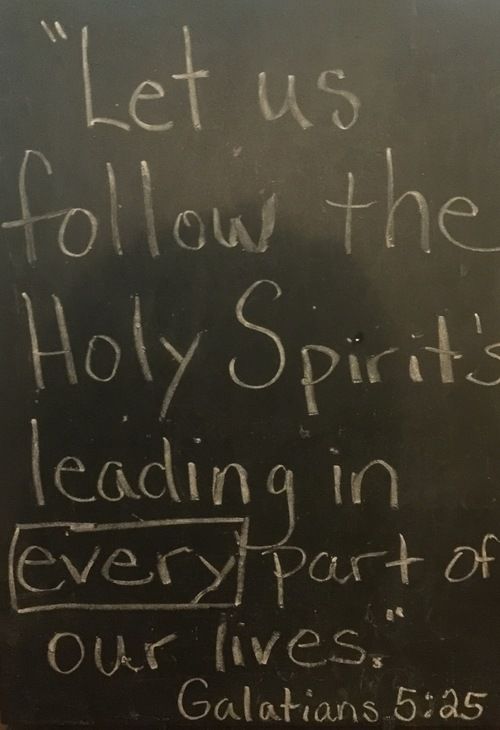 "Let us
follow the
Holy Spirit's
leading in
every part of
our lives."
Galatians 5:25